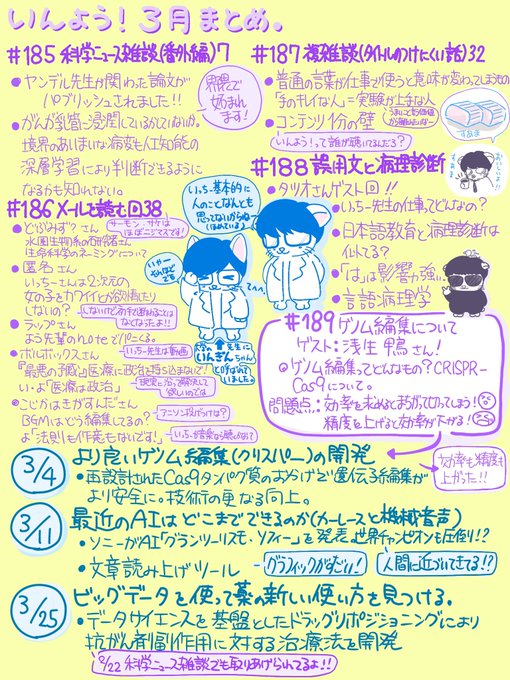 いんよう！3月まとめ。
#185 科学ニュース雑談(番外編)7
●ヤンデル先生が関わった論文が
パブリッシュされました！！
界隈で
好まれ
ます！
●がんが乳管に浸潤しているかしていないか。
境界のあいまいな病変も人工知能の
深層学習により判断できるように
なるかも知れない。
#187 復雑談(タイトルのつけにくい話)32
●普通の言葉が仕事で使うと意味が変わってしまうもの
「手のキレイな人」=実験が上手な人
●コンテンツ1分の壁
いんよう！って誰が聴いてるんだろ？
すあま
#188 誤用文と病理診断
●タツオさんゲスト回！！
●いっちー先生の仕事ってどんなの？
●日本語教育と病理診断は
似てる？
●「は」は影響力強い。
●言語病理学
#186 メールを読む回38
サーモン・サケは
ほぼニジマスです！
●どぶみず？さん
水圏生物系の研究者さん
生命科学のネーミングについて
●匿名さん
いっちーさんは2次元の
女の子をカワイイとか欲情したり
しないの？
●ラップさん
よう先輩のnoteでりくる。
いっちー先生は動画
●ボルボックスさん
「最悪の予測」と医療に政治を持ち込まないで！
い・よ「医療は政治」
●こじかはきかずんださん
BGMはどう編集してるの？
よ「法則も作為もないです！」
アニソン投げつけは？
いっちー、基本的に
人のことなんとも
思ってないからね
(ほめている♪)
いやー
それほど
でも
てへへ。
大学の先生に
いんぎんちゃん
と呼ばれて
いました。
#189 ゲノム編集について
ゲスト:浅生鴨さん！
●ゲノム編集ってどんなもの？CRISPR-
Cas9について。
問題点:効率を求めるとあちこち切ってしまう！
精度を上げると効率が下がる！
効率も精度も
上がった!!
3/4
より良いゲノム編集(クリスパー)の開発
●再設計されたCas9タンパク質のおかげで遺伝子編集が
より安全に。技術の更なる向上。
3/11
最近のAIはどこまでできるのか(カーレースと機械音声)
●ソニーがAI「グランツーリスモ・ソフィー」を発表。世界チャンピオンも圧倒!?
グラフィックがすごい！
●文章読み上げツール
人間に近づいてきてる!?
3/25
ビッグデータを使って薬の新しい使い方を見つける。
●データサイエンスを基盤としたドラッグリポジショニングにより
抗がん剤副作用に対する治療法を開発
8/22 科学ニュース雑談でも取りあげられてるよ！！